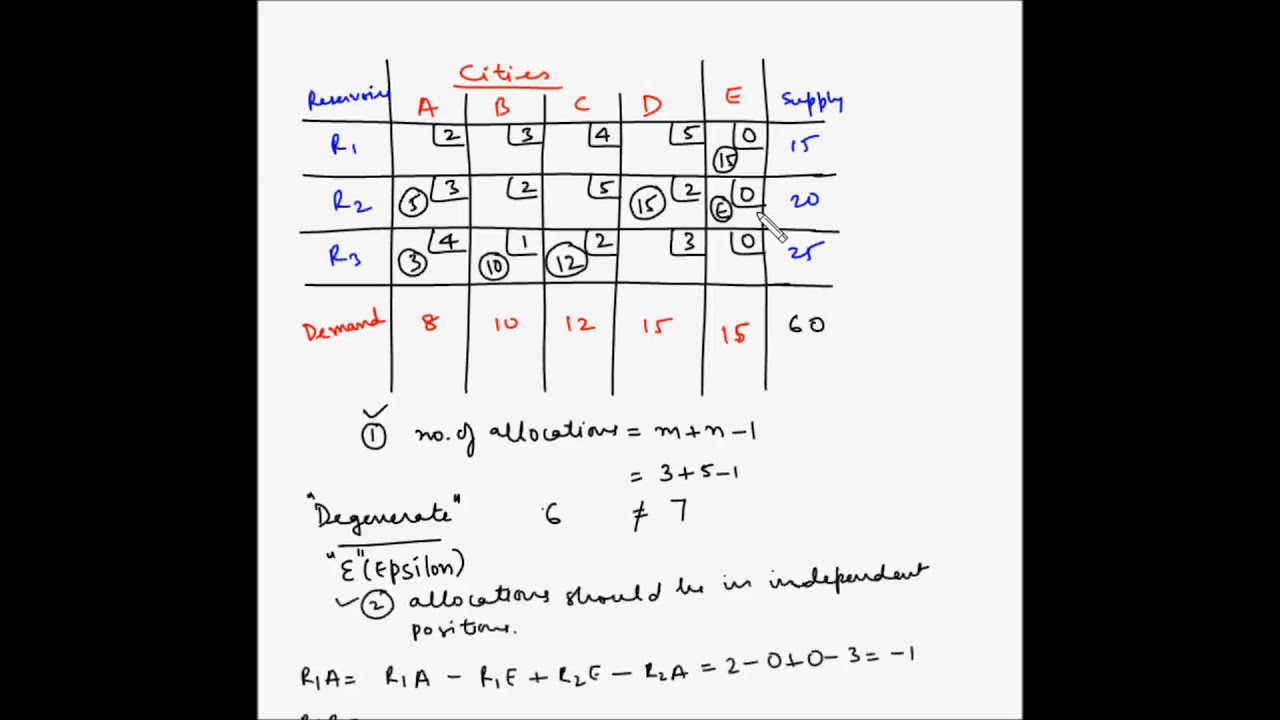 Cities
Reservoirs A B C D E Supply
R1 2 3 4 5 0 15 15
R2 5 3 2 5 15 2 E 0 20
R3 3 4 10 1 12 2 3 0 25
Demand 8 10 12 15 15 60
① no. of allocations = m+n-1
= 3+5-1
"Degenerate" 6 ≠ 7
"ε" (Epsilon)
② allocations should be in independent
positions.
R1A = R1A - R1E + R2E - R2A = 2-0+0-3 = -1